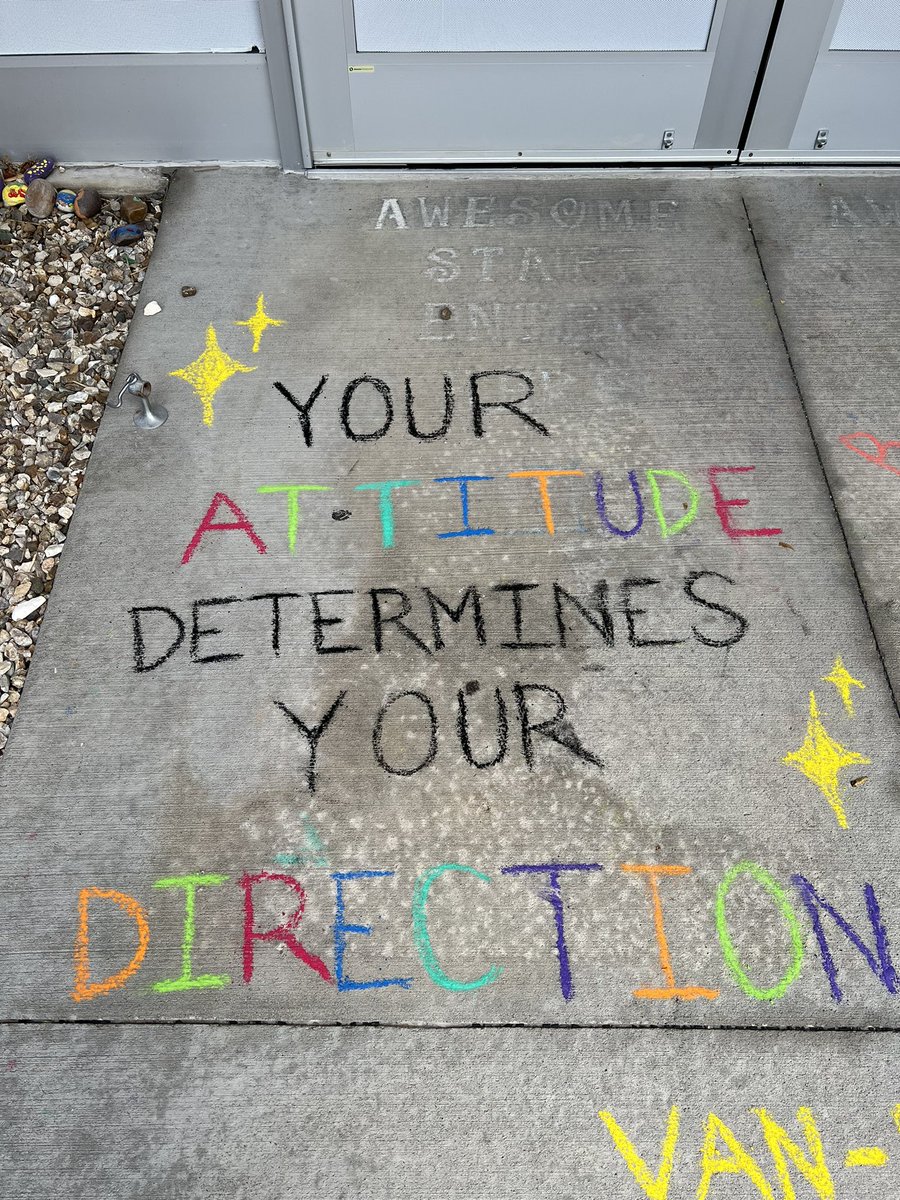 AWESOME
STAFF
YOUR
ATTITUDE
DETERMINES
YOUR
DIRECTION
VAN-